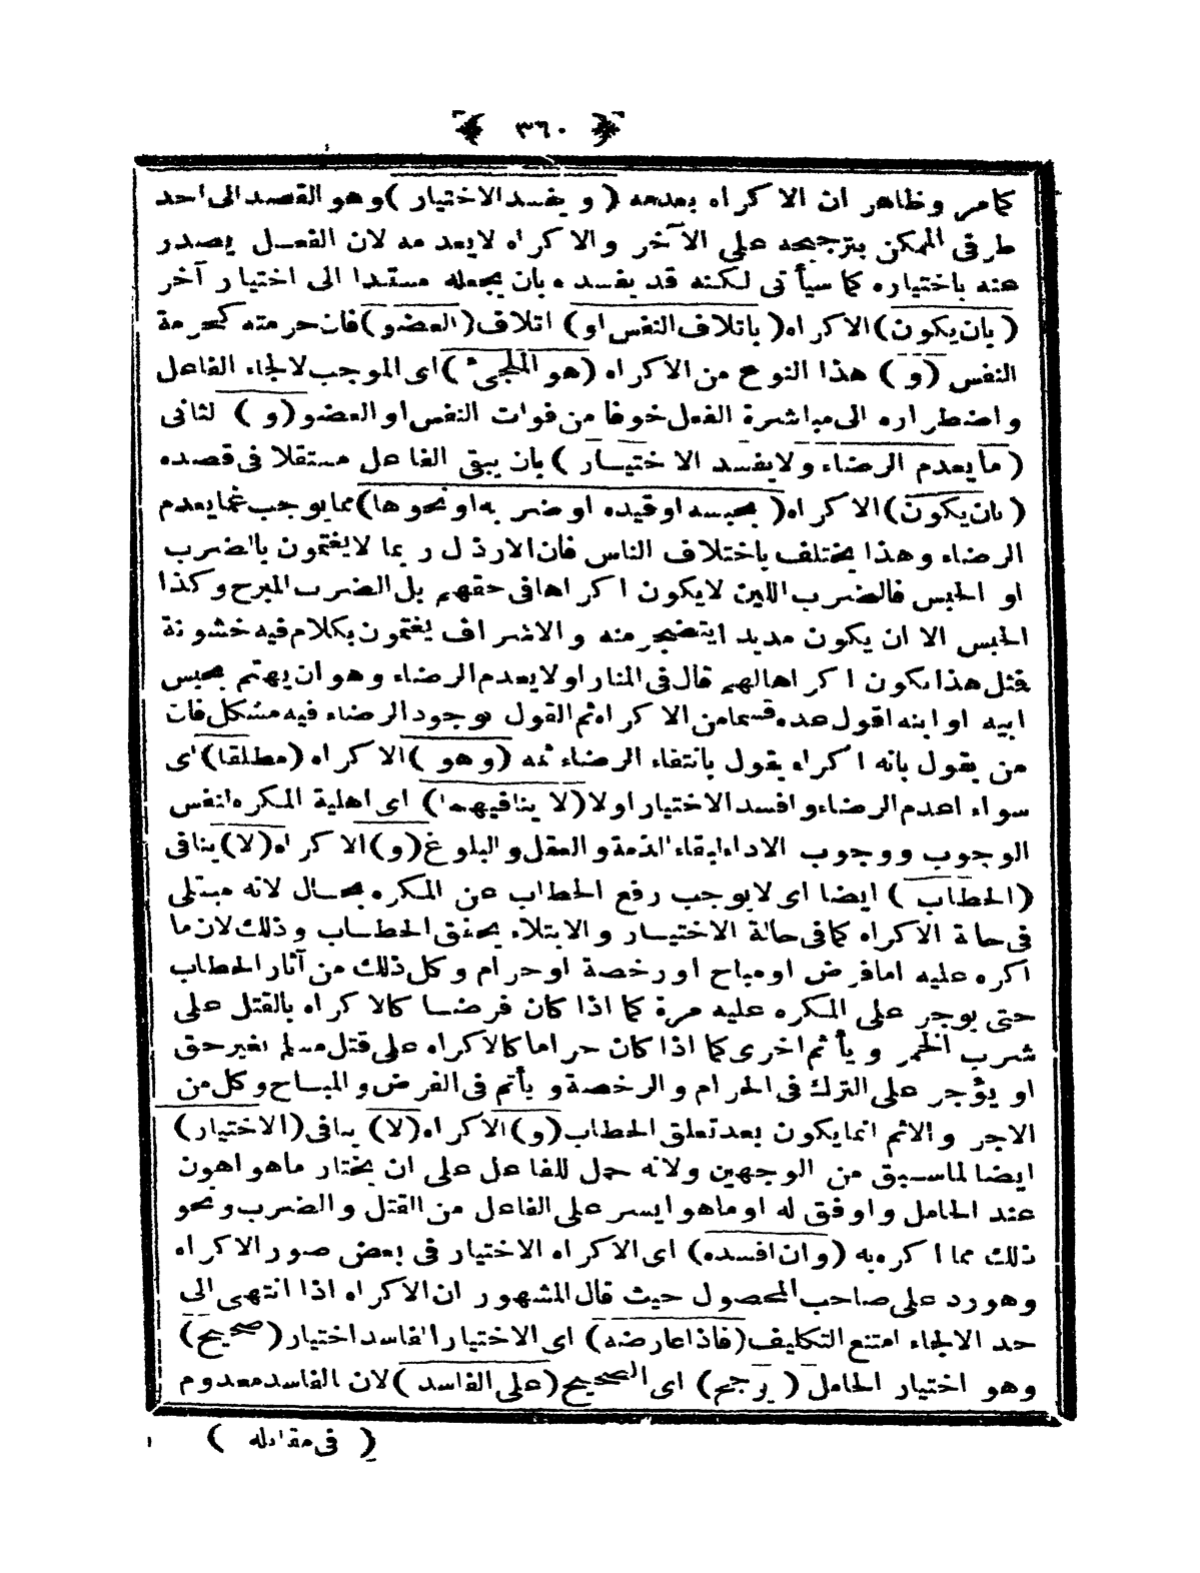 ﴿ ٣٦٠ ﴾
كمامر وظاهر ان الاكراه يعدمه (ويفسد الاختيار) وهو القصد الى احد
طرفى الممكن بترجيحه على الآخر والاكراه لايعدمه لان الفعل يصدر
عنه باختياره كما سيأتى لكنه قد يفسده بان يجعله مستندا الى اختيار آخر
(بان يكون) الاكراه (باتلاف النفس او) اتلاف (العضو) فان حرمته كحرمة
النفس (و) هذا النوع من الاكراه (هو الملجئ) اى الموجب لالجاء الفاعل
واضطراره الى مباشرة الفعل خوفا من فوات النفس او العضو (و) لثانى
(ما يعدم الرضاء ولايفسد الاختيار) بان يبقى الفاعل مستقلا فى قصده
(بان يكون) الاكراه (بحبسه او قيده او ضربه او نحوها) مما يوجب غما يعدم
الرضاء وهذا يختلف باختلاف الناس فان الارذل ربما لايغتمون بالضرب
او الحبس فالضرب اللين لايكون اكراها فى حقهم بل الضرب المبرح وكذا
الحبس الا ان يكون مديدا يتضجر منه والاشراف يغتمون بكلام فيه خشونة
فمثل هذا يكون اكراها لهم قال فى المنار او لايعدم الرضاء وهو ان يهتم بحبس
ابيه او ابنه اقول عده قسما من الاكراه ثم القول بوجود الرضاء فيه مشكل فان
من يقول بانه اكراه يقول بانتفاء الرضاء ثمه (وهو) الاكراه (مطلقا) اى
سواء اعدم الرضاء وافسد الاختيار اولا (لا ينافيهما) اى اهلية المكره لنفس
الوجوب ووجوب الاداء لبقاء الذمة والعقل والبلوغ (و) الاكراه (لا) ينافى
(الخطاب) ايضا اى لايوجب رفع الخطاب عن المكره بحال لانه مبتلى
فى حالة الاكراه كما فى حالة الاختيار والابتلاء يحقق الخطاب وذلك لان ما
اكره عليه اما فرض او مباح او رخصة او حرام وكل ذلك من آثار الخطاب
حتى يوجر على المكره عليه مرة كما اذا كان فرضا كالاكراه بالقتل على
شرب الخمر ويأثم اخرى كما اذا كان حراما كالاكراه على قتل مسلم بغير حق
او يؤجر على الترك فى الحرام والرخصة ويأثم فى الفرض والمباح وكل من
الاجر والاثم انما يكون بعد تعلق الخطاب (و) الاكراه (لا) ينافى (الاختيار)
ايضا لما سبق من الوجهين ولانه حمل للفاعل على ان يختار ماهو اهون
عند الحامل واوفق له او ماهو ايسر على الفاعل من القتل والضرب ونحو
ذلك مما اكره به (وان افسده) اى الاكراه الاختيار فى بعض صور الاكراه
وهو رد على صاحب المحصول حيث قال المشهور ان الاكراه اذا انتهى الى
حد الالجاء امتنع التكليف (فاذا عارضه) اى الاختيار الفاسد اختيار (صحيح)
وهو اختيار الحامل (يرجح) اى الصحيح (على الفاسد) لان الفاسد معدوم
(فى مقابله)